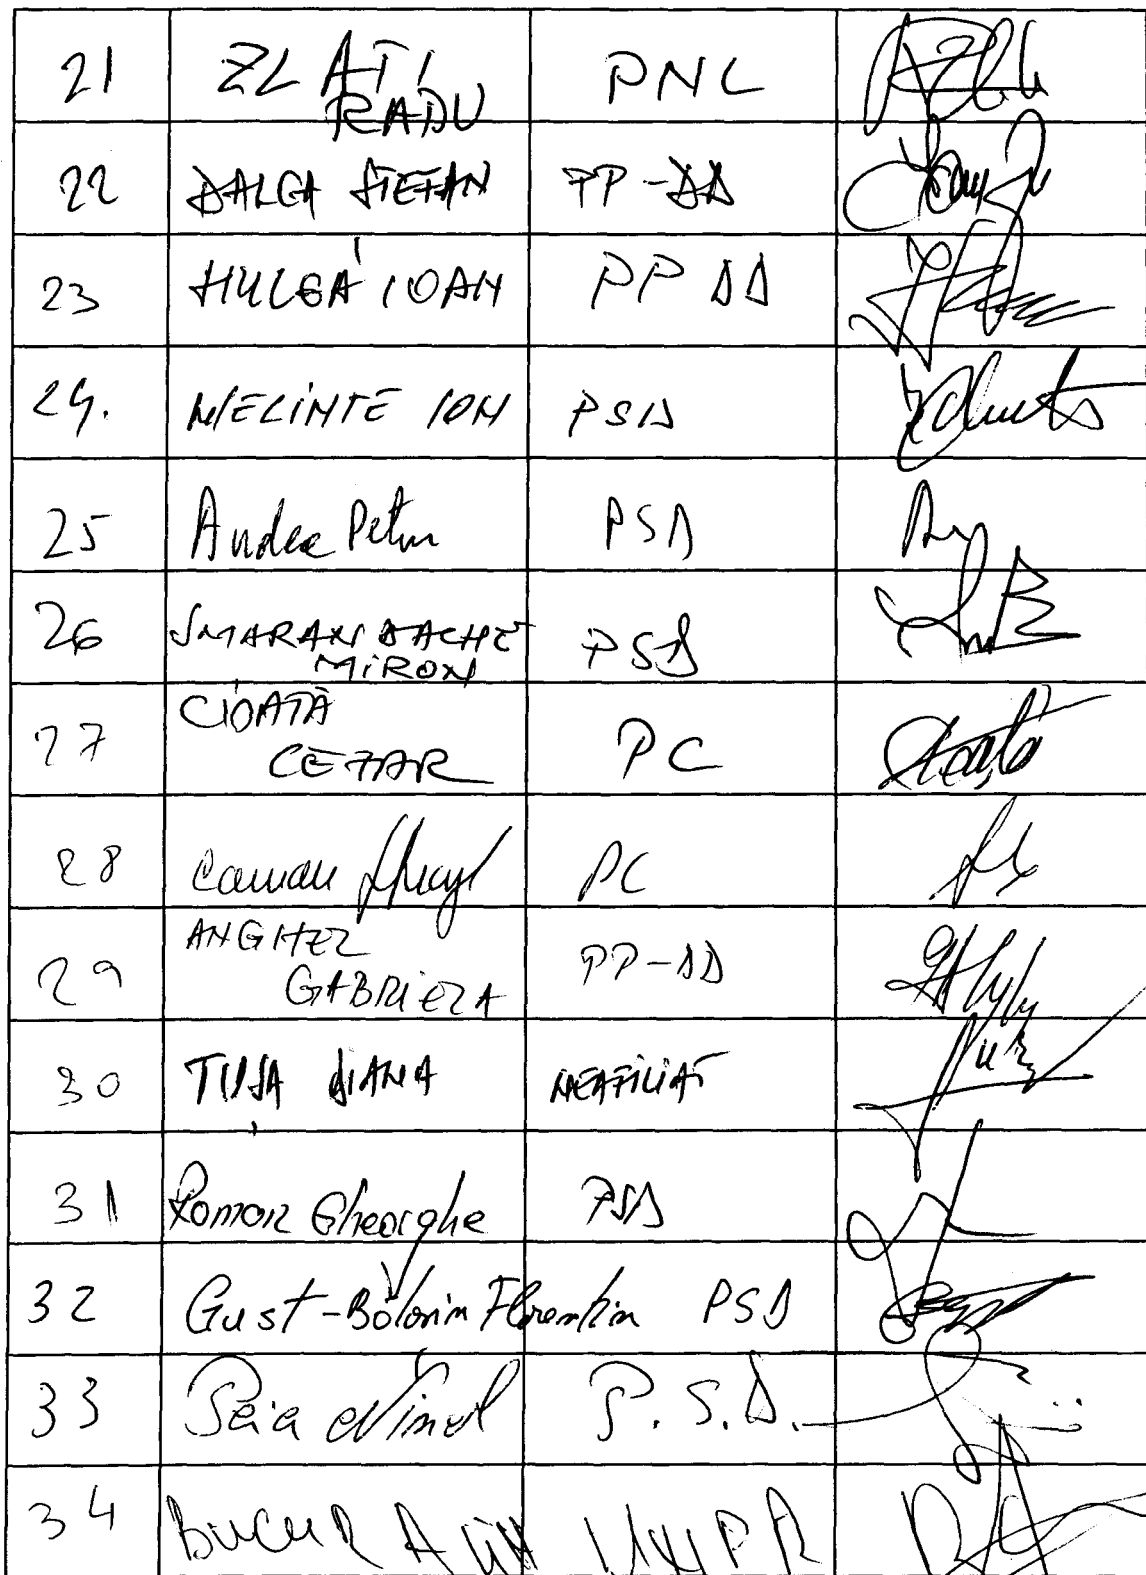 21 ZLATI PNL
RADU
22 DALCA STEFAN PP-DD
23 HULEA IOAN PP DD
24. MELINTE ION PSD
25 Andea Petru PSD
26 SMARANDACHE PSD
MIRON
27 CIOATĂ PC
CEZAR
28 Coman PC
29 ANGHEL PP-DD
GABRIELA
30 TUȘA DIANA NEAFILIAT
31 Roman Gheorghe PSD
32 Gust-Băloșin Florentin PSD
33 Peia Ninel P.S.D.
34 BUCUR ALIN UNPR